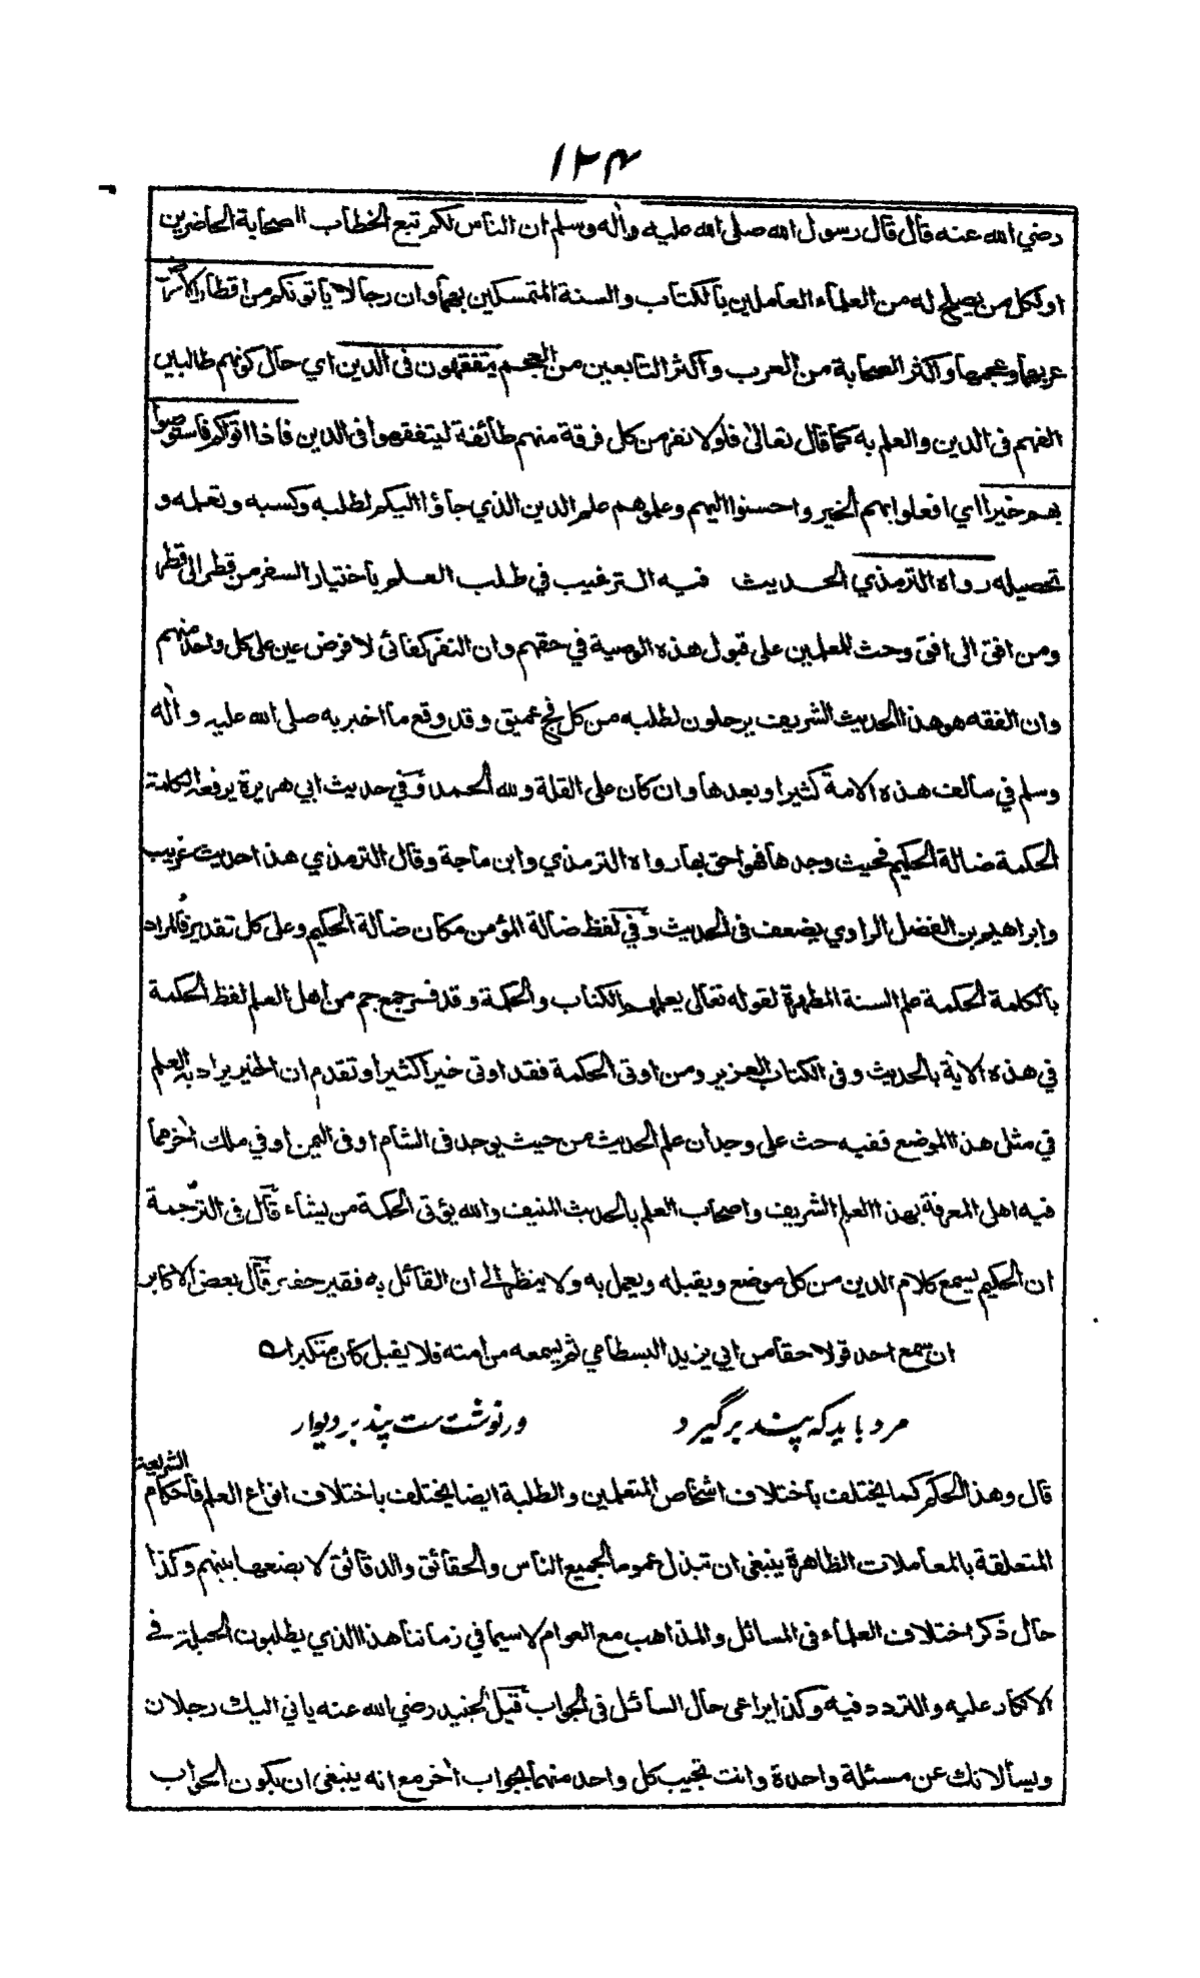 ١٢٤
رضي الله عنه قال قال رسول الله صلى الله عليه وأله وسلم ان الناس لكم تبع الخطاب الصحابة الحاضرين
او لكل من يصلح له من العلماء العاملين بالكتاب والسنة المتمسكين بهما وان رجالا يأتونكم من اقطار الارض
عربها وعجمها واكثر الصحابة من العرب واكثر التابعين من العجم يتفقهون فى الدين اي حال كونهم طالبين
الفهم فى الدين والعلم به كما قال تعالى فلولا نفر من كل فرقة منهم طائفة ليتفقهوا فى الدين فاذا اتوكم فاستوصوا
بهم خيرا اي افعلوا بهم الخير واحسنوا اليهم وعلموهم علم الدين الذي جاؤا اليكم لطلبه وكسبه وتعلمه و
تحصيله رواه الترمذي الحديث فيه الترغيب في طلب العلم باختيار السفر من قطر الى قطر
ومن افق الى افق وحث للمعلمين على قبول هذه الوصية في حقهم وان النفر كفائى لا فرض عين على كل واحد منهم
وان الفقه هو هذا الحديث الشريف يرحلون لطلبه من كل فج عميق وقد وقع ما اخبر به صلى الله عليه وأله
وسلم في سالف هذه الامة كثيرا وبعدها وان كان على القلة ولله الحمد وفي حديث ابي هريرة يرفعه الكلمة
الحكمة ضالة الحكيم فحيث وجدها فهو احق بها رواه الترمذي وابن ماجة وقال الترمذي هذا حديث غريب
وابراهيم بن الفضل الراوي يضعف فى الحديث وفي لفظ ضالة المؤمن مكان ضالة الحكيم وعلى كل تقدير فالمراد
بالكلمة الحكمة علم السنة المطهرة لقوله تعالى يعلمهم الكتاب والحكمة وقد فسر جمع جم من اهل العلم لفظ الحكمة
في هذه الأية بالحديث وفى الكتاب العزيز ومن اوتى الحكمة فقد اوتى خيرا كثيرا وتقدم ان الخير يراد به العلم
في مثل هذا الموضع ففيه حث على وجدان علم الحديث من حيث يوجد فى الشام او فى اليمن او في ملك أخر مما
فيه اهل المعرفة بهذا العلم الشريف واصحاب العلم بالحديث المنيف والله يؤتى الحكمة من يشاء قال فى الترجمة
ان الحكيم يسمع كلام الدين من كل موضع ويقبله ويعمل به ولا ينظر الى ان القائل به فقير حقير قال بعض الاكابر
ان سمع احد قولا حقا من ابي يزيد البسطامي ثم يسمعه من امته فلا يقبل كان متكبرا
مرد باید که پند برگیرد ور نوشت ست پند بر دیوار
قال وهذا الحكم كما يختلف باختلاف اشخاص المتعلمين والطلبة ايضا يختلف باختلاف انواع العلم فاحكام الشريعة
المتعلقة بالمعاملات الظاهرة ينبغى ان تبذل عموما لجميع الناس والحقائق والدقائق لا يضعها بينهم وكذا
حال ذكر اختلاف العلماء فى المسائل والمذاهب مع العوام لاسيما في زماننا هذا الذي يطلبون الحيلة في
الانكار عليه والتردد فيه وكذا يراعى حال السائل فى الجواب قيل لجنيد رضي الله عنه ياتي اليك رجلان
ويسألانك عن مسئلة واحدة وانت تجيب كل واحد منهما بجواب أخر مع انه ينبغى ان يكون الجواب